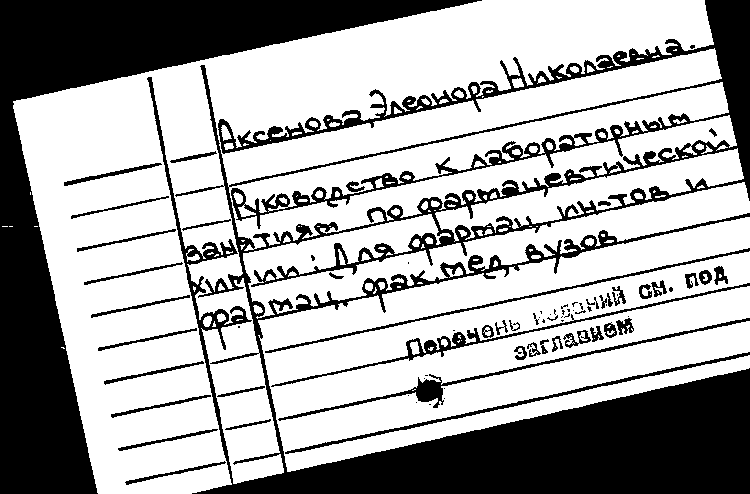 Аксенова, Элеонора Николаевна.
Руководство к лабораторным
занятиям по фармацевтической
химии: Для фармац. ин-тов и
фармац. фак. мед. вузов
Перечень изданий см. под
заглавием